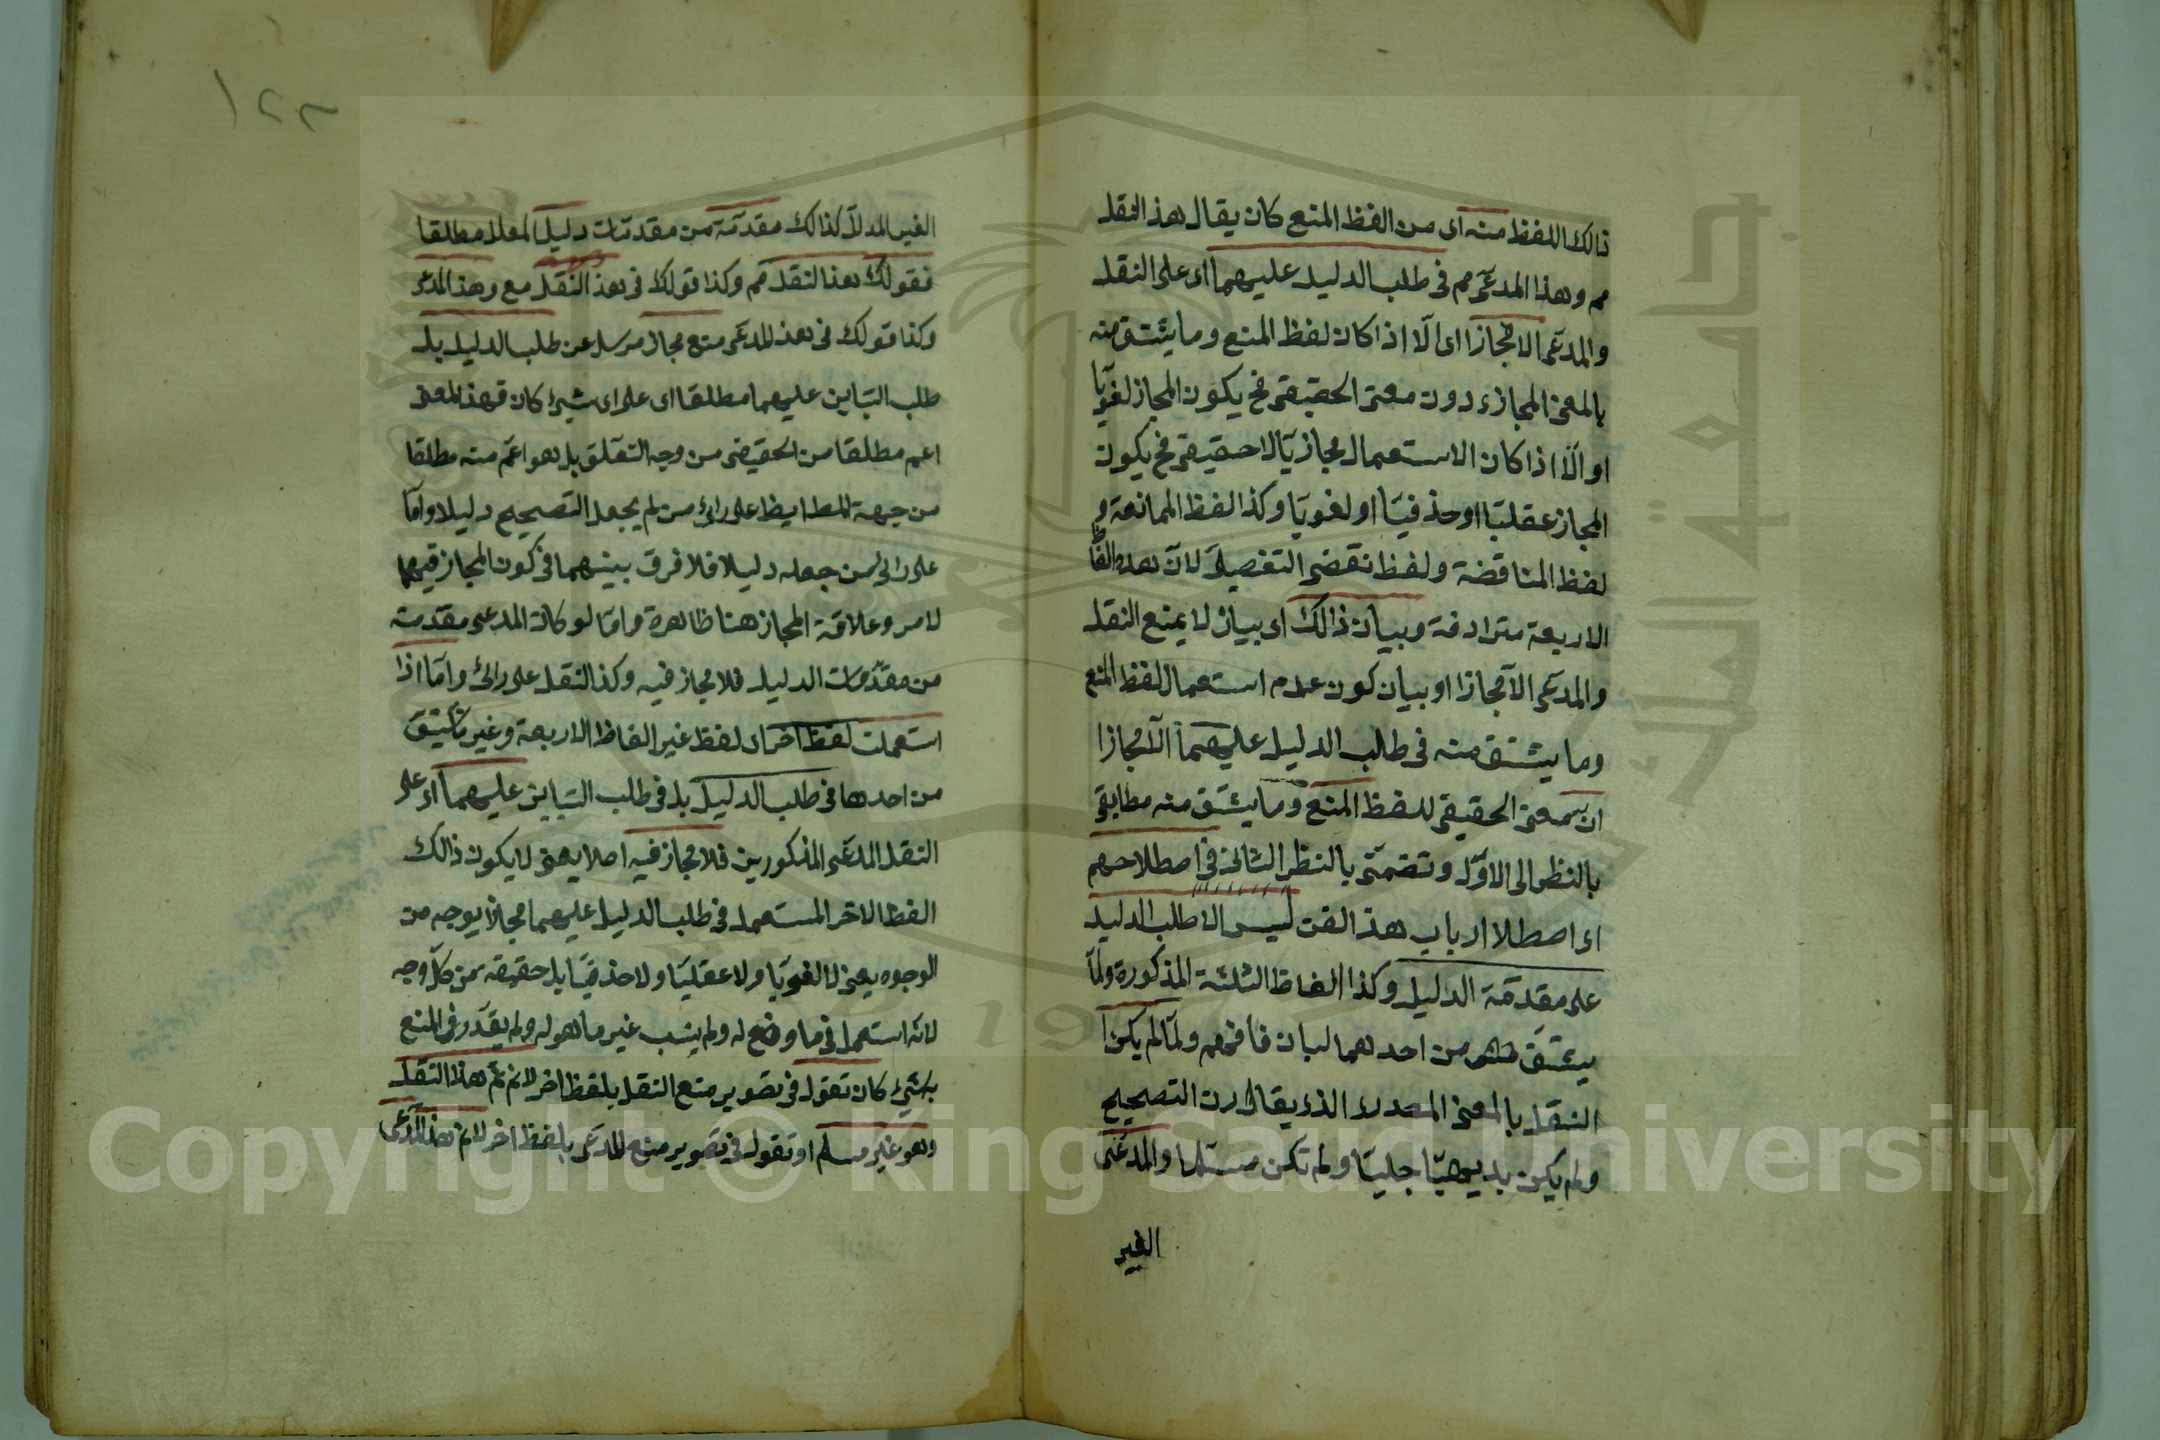 ذالك اللفظ منه اى من الفظ المنع كان يقال هذ النقل
مم وهذا المدعى مم فى طلب الدليل عليهما اى على النقل
والمدعى الا مجازا اى الّا اذا كان لفظ المنع وما يشتق منه
بالمعنى المجازى دون معنى الحقيقى فح يكون المجاز لغويّا
او الّا اذا كان الاستعمال مجازيّا لا حقيقى فح يكون
المجاز عقليّا او حذفيّا او لغويّا وكذا لفظ الممانعة و
لفظ المناقضة ولفظ نقضى التفصيل لانّ هذه الفا
الاربعة مترادفة وبيان ذالك اى بيان لا يمنع النقل
والمدعى الّا مجازا او بيان كون عدم استعمال لفظ المنع
وما يشتق منه فى طلب الدليل عليهما الّا مجازا
ان معنى الحقيقى للفظ المنع وما يشتق منه مطابقى
بالنظر الى الاوّل وتضمنى بالنظر الثانى فى اصطلاحهم
اى اصطلا ارباب هذ الفن ليس الا طلب الدليل
على مقدمة الدليل وكذا الفاظ الثلثة المذكورة ولمّا
يشتق من احدهما لبان فافهم ولمّا لم يكن
النقل بالمعنى المصدرى الذى يقال رن التصحيح
ولم يكن بديهيّا جليّا ولم تكن مسلما والمدعى
الغير
١٢٢
الغير المدلّل كذالك مقدمة من مقدمات دليل المعلل مطلقا
فقولك هذا النقل مم وكذا قولك فى هذ النقل مع وهذ المدعى
وكذا قولك فى هذ المدعى منع مجاز مرسل عن طلب الدليل بل
طلب التباين عليهما مطلقا اى على اى شىء كان فهذ المعنى
اعم مطلقا من الحقيقى من وجه التعلق بل هو اعم منه مطلقا
من جهة المط ايظا على رائ من لم يجعل التصحيح دليلا وامّا
على رائ من جعله دليلا فلا فرق بينهما فى كون المجاز فيهما
لامر وعلاقة المجاز هنا ظاهرة وامّا لو كانة المدعى مقدمته
من مقدّمات الدليل فلا مجاز فيه وكذ النقل على رائ وامّا اذا
استعملت لفظ اخر اى لفظ غير الفاظ الاربعة وغير ما يشتق
من احدها فى طلب الدليل بل فى طلب التباين عليهما اى على
النقل المدعى المذكورين فلا مجاز فيه اصلا يعنى لا يكون ذالك
الفظ الاخر المستعمل فى طلب الدليل عليهما مجازا بوجه من
الوجوه يعنى لا لغويّا ولا عقليّا ولا حذفيّا بل حقيقه من كلّ وجه
لانّه استعمل فى ما وضع له ولم ينسب غير ما هو له ولم يقدّر فى المنع
بشىء كان تقول فى تصوير منع النقل بلفظ اخر لا نم ثم هذا النقل
وهو غير مسلم او تقول فى تصوير منع المدعى بلفظ اخر لا نم هذ المدعى